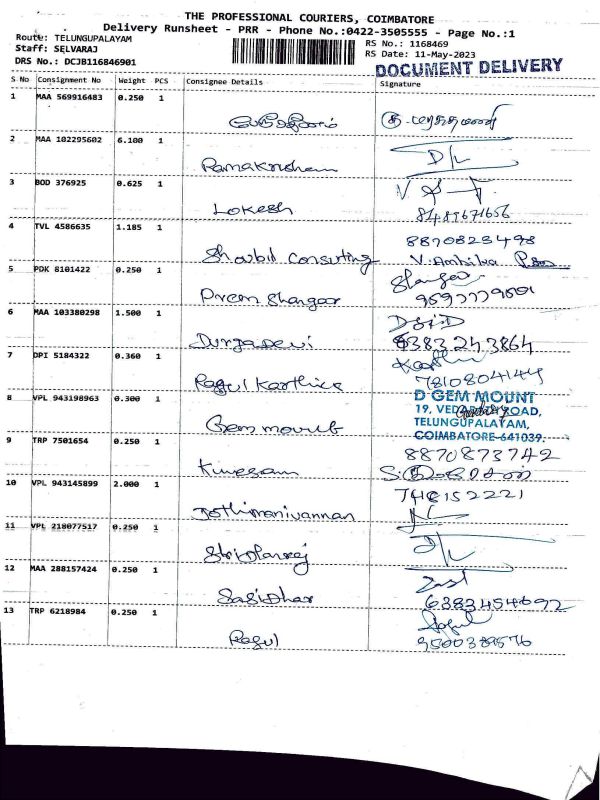 THE PROFESSIONAL COURIERS, COIMBATORE
Delivery Runsheet - PRR - Phone No.:0422-3505555 - Page No.:1
Route: TELUNGUPALAYAM
Staff: SELVARAJ
DRS No.: DCJB116846901
RS No.: 1168469
RS Date: 11-May-2023
DOCUMENT DELIVERY
S No Consignment No Weight PCS Consignee Details Signature
1 MAA 569916483 0.250 1
2 MAA 102295602 6.100 1
Ramakrishnan D/L
3 BOD 376925 0.625 1
Lokesh
4 TVL 4586635 1.185 1 8870823498
Consulting V. Ambika
5 PDK 8101422 0.250 1
Prem Shangar
6 MAA 103380298 1.500 1
Durgadevi 6383243864
7 DPI 5184322 0.360 1 Karthi
Ragul Karthick 7810804144
8 VPL 943198963 0.300 1 D GEM MOUNT
19, VEDAPATTI ROAD,
TELUNGUPALAYAM,
Gem mount COIMBATORE-641039.
9 TRP 7501654 0.250 1 8870873742
10 VPL 943145899 2.000 1
Jothimanivannan
11 VPL 218077517 0.250 1 D/L
12 MAA 288157424 0.250 1
Sasidhar 6383454692
13 TRP 6218984 0.250 1 Ragul
Ragul 9500389576